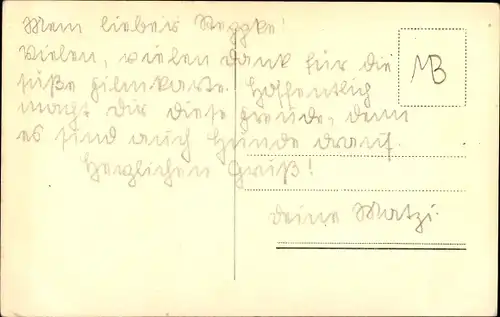 Mein liebes
MB
Vielen, vielen Dank für die
süße Filmkarte. Hoffentlich
macht Dir diese Freude, denn
es sind auch Hunde drauf.
Herzlichen Gruß!
Deine Matzi.